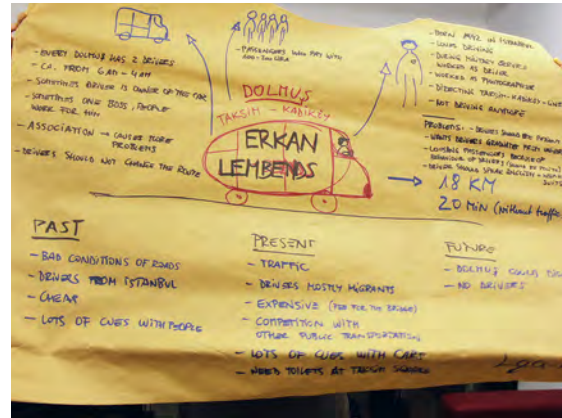 - EVERY DOLMUŞ HAS 2 DRIVERS
- CA. FROM 6 AM - 4 AM
- SOMETIMES DRIVER IS OWNER OF THE CAR
- SOMETIMES ONE BOSS, PEOPLE
WORK FOR HIM
- ASSOCIATION → CAUSES MORE
PROBLEMS
- DRIVERS SHOULD NOT CHANGE THE ROUTE
- PASSENGERS WHO PAY WITH
DOLMUŞ
TAKSIM - KADIKÖY
ERKAN
LEMBENDS
- BORN 1942 IN ISTANBUL
- LOVES DRIVING
- DURING MILITARY SERVICE
WORKED AS DRIVER
- WORKED AS PHOTOGRAPHER
- DIRECTING TAKSIM - KADIKÖY -
- NOT DRIVING ANYMORE
PROBLEMS: - DRIVERS SHOULD BE
- WANTS DRIVERS GRADUATED FROM
- LOOSING PASSENGERS BECAUSE OF
BEHAVIOUR OF DRIVERS
- DRIVER SHOULD SPEAK ENGLISH +
SUITS
→ 18 KM
20 MIN (without traffic
PAST
- BAD CONDITIONS OF ROADS
- DRIVERS FROM ISTANBUL
- CHEAP
- LOTS OF CUES WITH PEOPLE
PRESENT
- TRAFFIC
- DRIVERS MOSTLY MIGRANTS
- EXPENSIVE (FEE FOR THE BRIDGE)
- COMPETITION WITH
OTHER PUBLIC TRANSPORTATION
- LOTS OF CUES WITH CARS
- NEED TOILETS AT TAKSIM SQUARE
FUTURE
- DOLMUŞ COULD
- NO DRIVERS